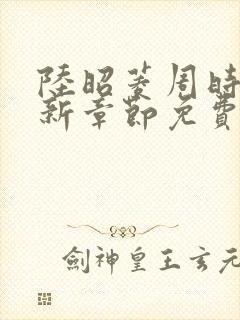 陸昭菱周時
新章節免費
劍神皇王玄元